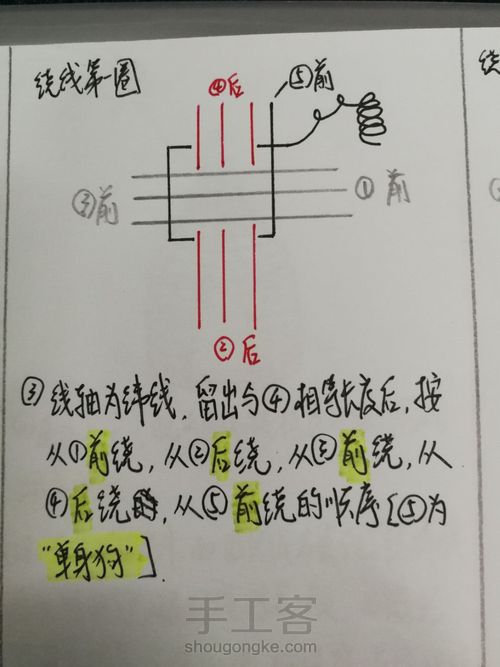 绕线第一圈
④后
⑤前
③前
①前
②后
③线轴为纬线，留出与④相等长度后，按
从①前绕，从②后绕，从③前绕，从
④后绕，从⑤前绕的顺序[⑤为
"单身狗"]
绕
手工客
shougongke.com